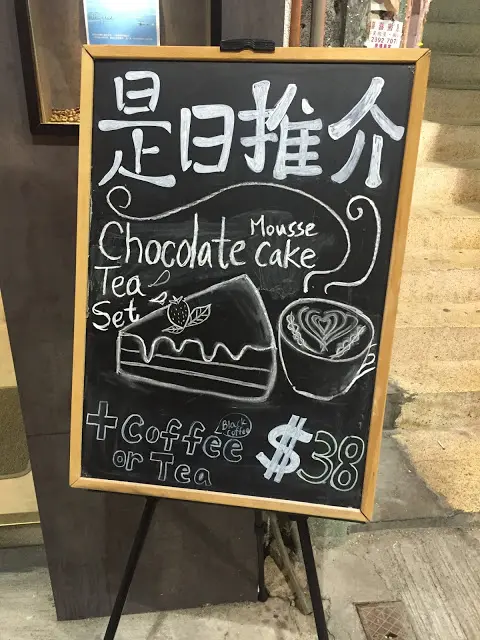 是日推介
Chocolate Mousse Cake
Tea
Set
Black
Coffee
+ Coffee
or Tea
$38
2392 707